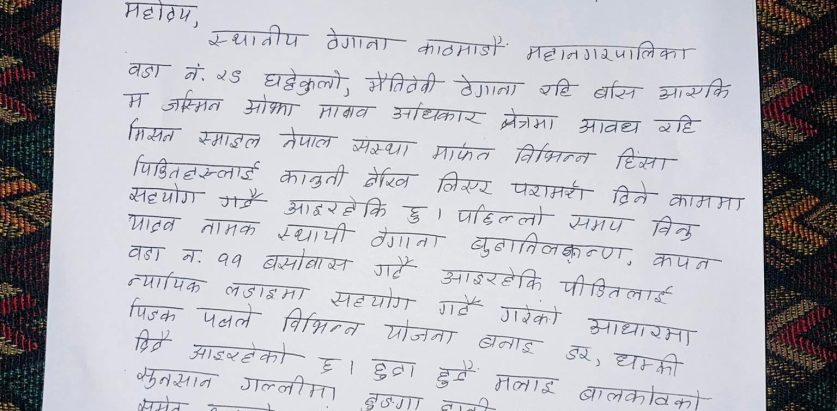 महोदय,
स्थानीय ठेगाना काठमाडौं महानगरपालिका
वडा नं. २९ घट्टेकुलो, मैतिदेवी ठेगाना रहि बसि आएकि
म जस्मिन ओझा मानव अधिकार क्षेत्रमा आवध रहि
मिसन स्माइल नेपाल संस्था मार्फत विभिन्न हिंसा
पिडितहरुलाई कानुनी देखि लिएर परामर्श दिने काममा
सहयोग गर्दै आइरहेकि छु । पछिल्लो समय विनु
यादव नामक स्थायी ठेगाना बुढानिलकण्ठ, कपन
वडा नं. ११ बसोबास गर्दै आइरहेकि पीडितलाई
न्यायिक लडाइमा सहयोग गर्दै गरेको आधारमा
पिडक पक्षले विभिन्न योजना बनाइ डर, धम्की
दिदै आइरहेको छ । छुदा हुदै मलाइ बालकोटको
सुनसान गल्लीमा ढुङ्गा
समेत